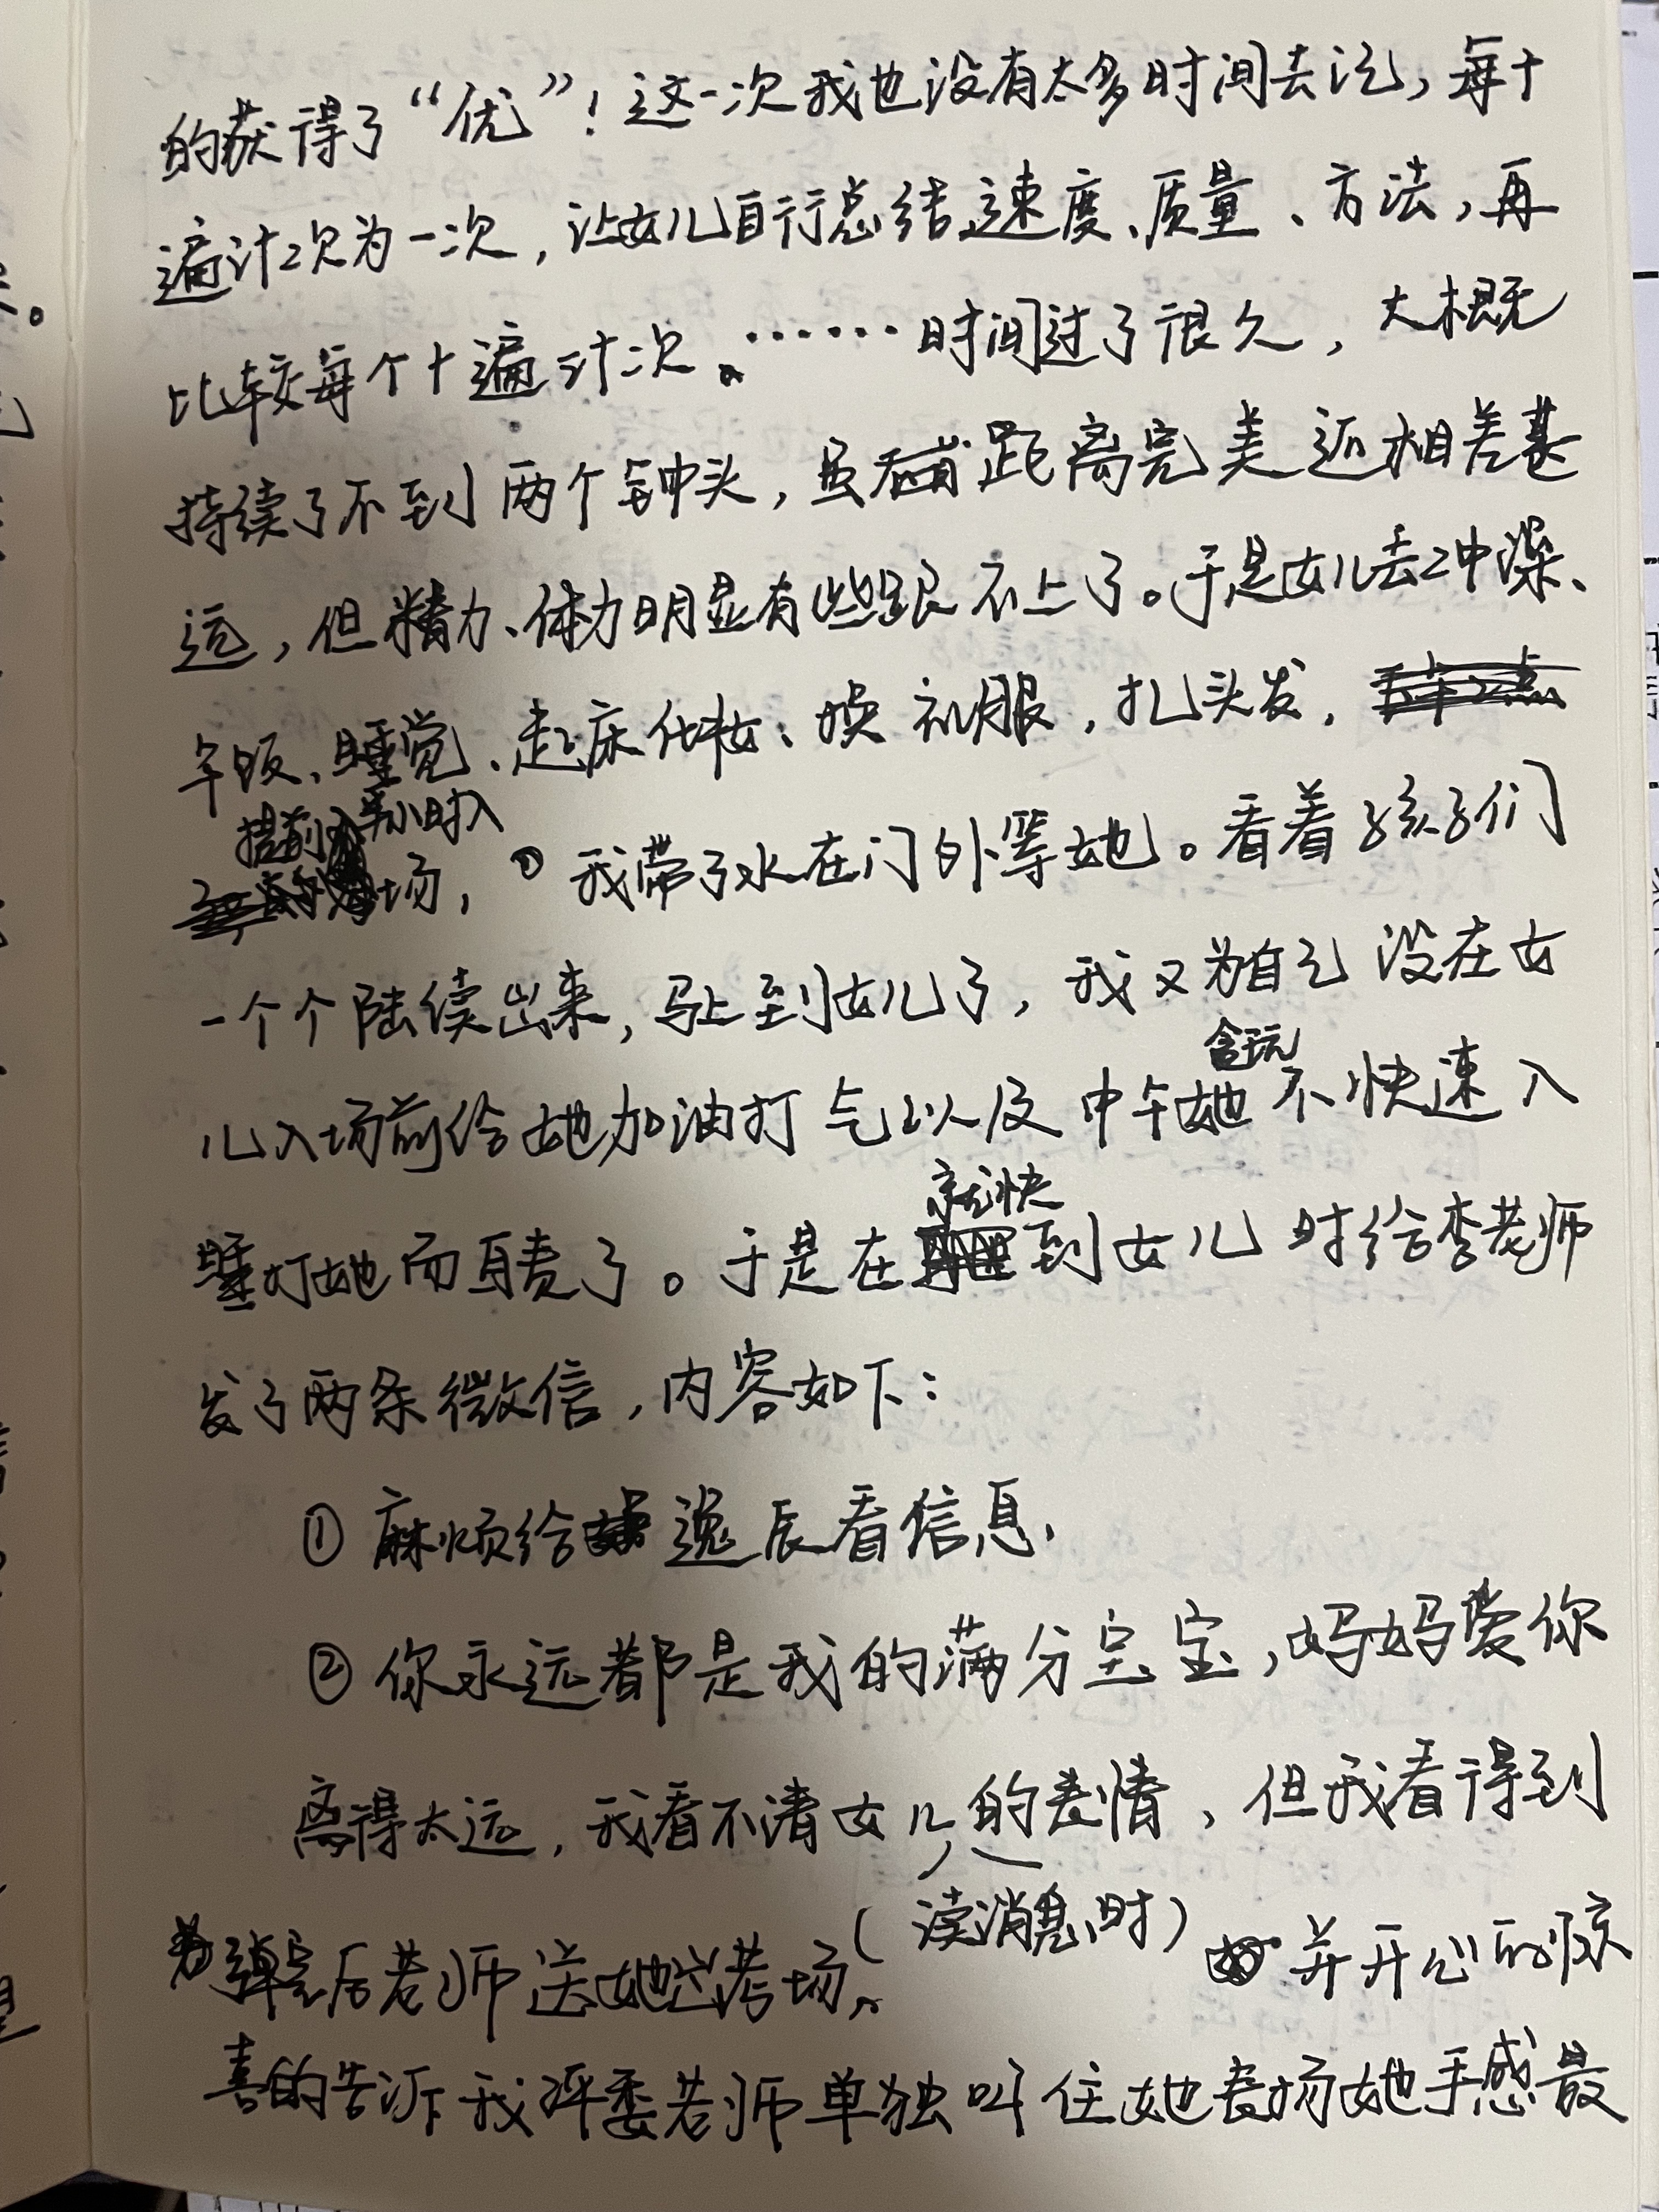 的获得了“优”！这一次我也没有太多时间去记，每十
遍计次为一次，让女儿自行总结速度、质量、方法，再
比较每个十遍计次。……时间过了很久，大概
持续了不到两个钟头，虽然距离完美还相差甚
远，但精力、体力明显有些跟不上了。于是女儿去冲澡、
午饭、睡觉、起床化妆、换礼服，扎头发，
提前半小时入
场，我带了水在门外等她。看着孩子们
一个个陆续出来，马上到女儿了，我又为自己没在女
贪玩
儿入场前给她加油打气以及中午她不快速入
就快
睡打她而自责了。于是在到女儿时给李老师
发了两条微信，内容如下：
①麻烦给逸辰看信息、
②你永远都是我的满分宝宝，妈妈爱你
离得太远，我看不清女儿的表情，但我看得到
（读消息时）
弹完后老师送她出考场，并开心的惊
喜的告诉我评委老师单独叫住她表扬她手感最